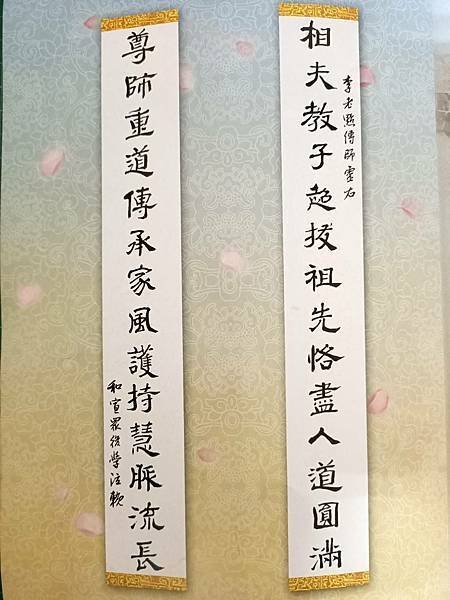 李老點傳師靈右
相夫教子超拔祖先恪盡人道圓滿
尊師重道傳承家風護持慧脈流長
和宣眾後學泣輓